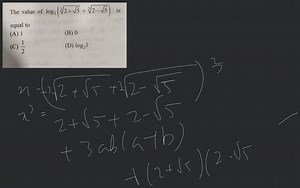 The value of log₂(∛2+√5 + ∛2−√5) is
equal to
(A) 1 (B) 0
(C) 1/2 (D) log₂3
x = (∛2+√5 + ∛2−√5)³
x³ =
2+√5 + 2−√5
+ 3ab(a+b)
+ (2+√5)(2−√5